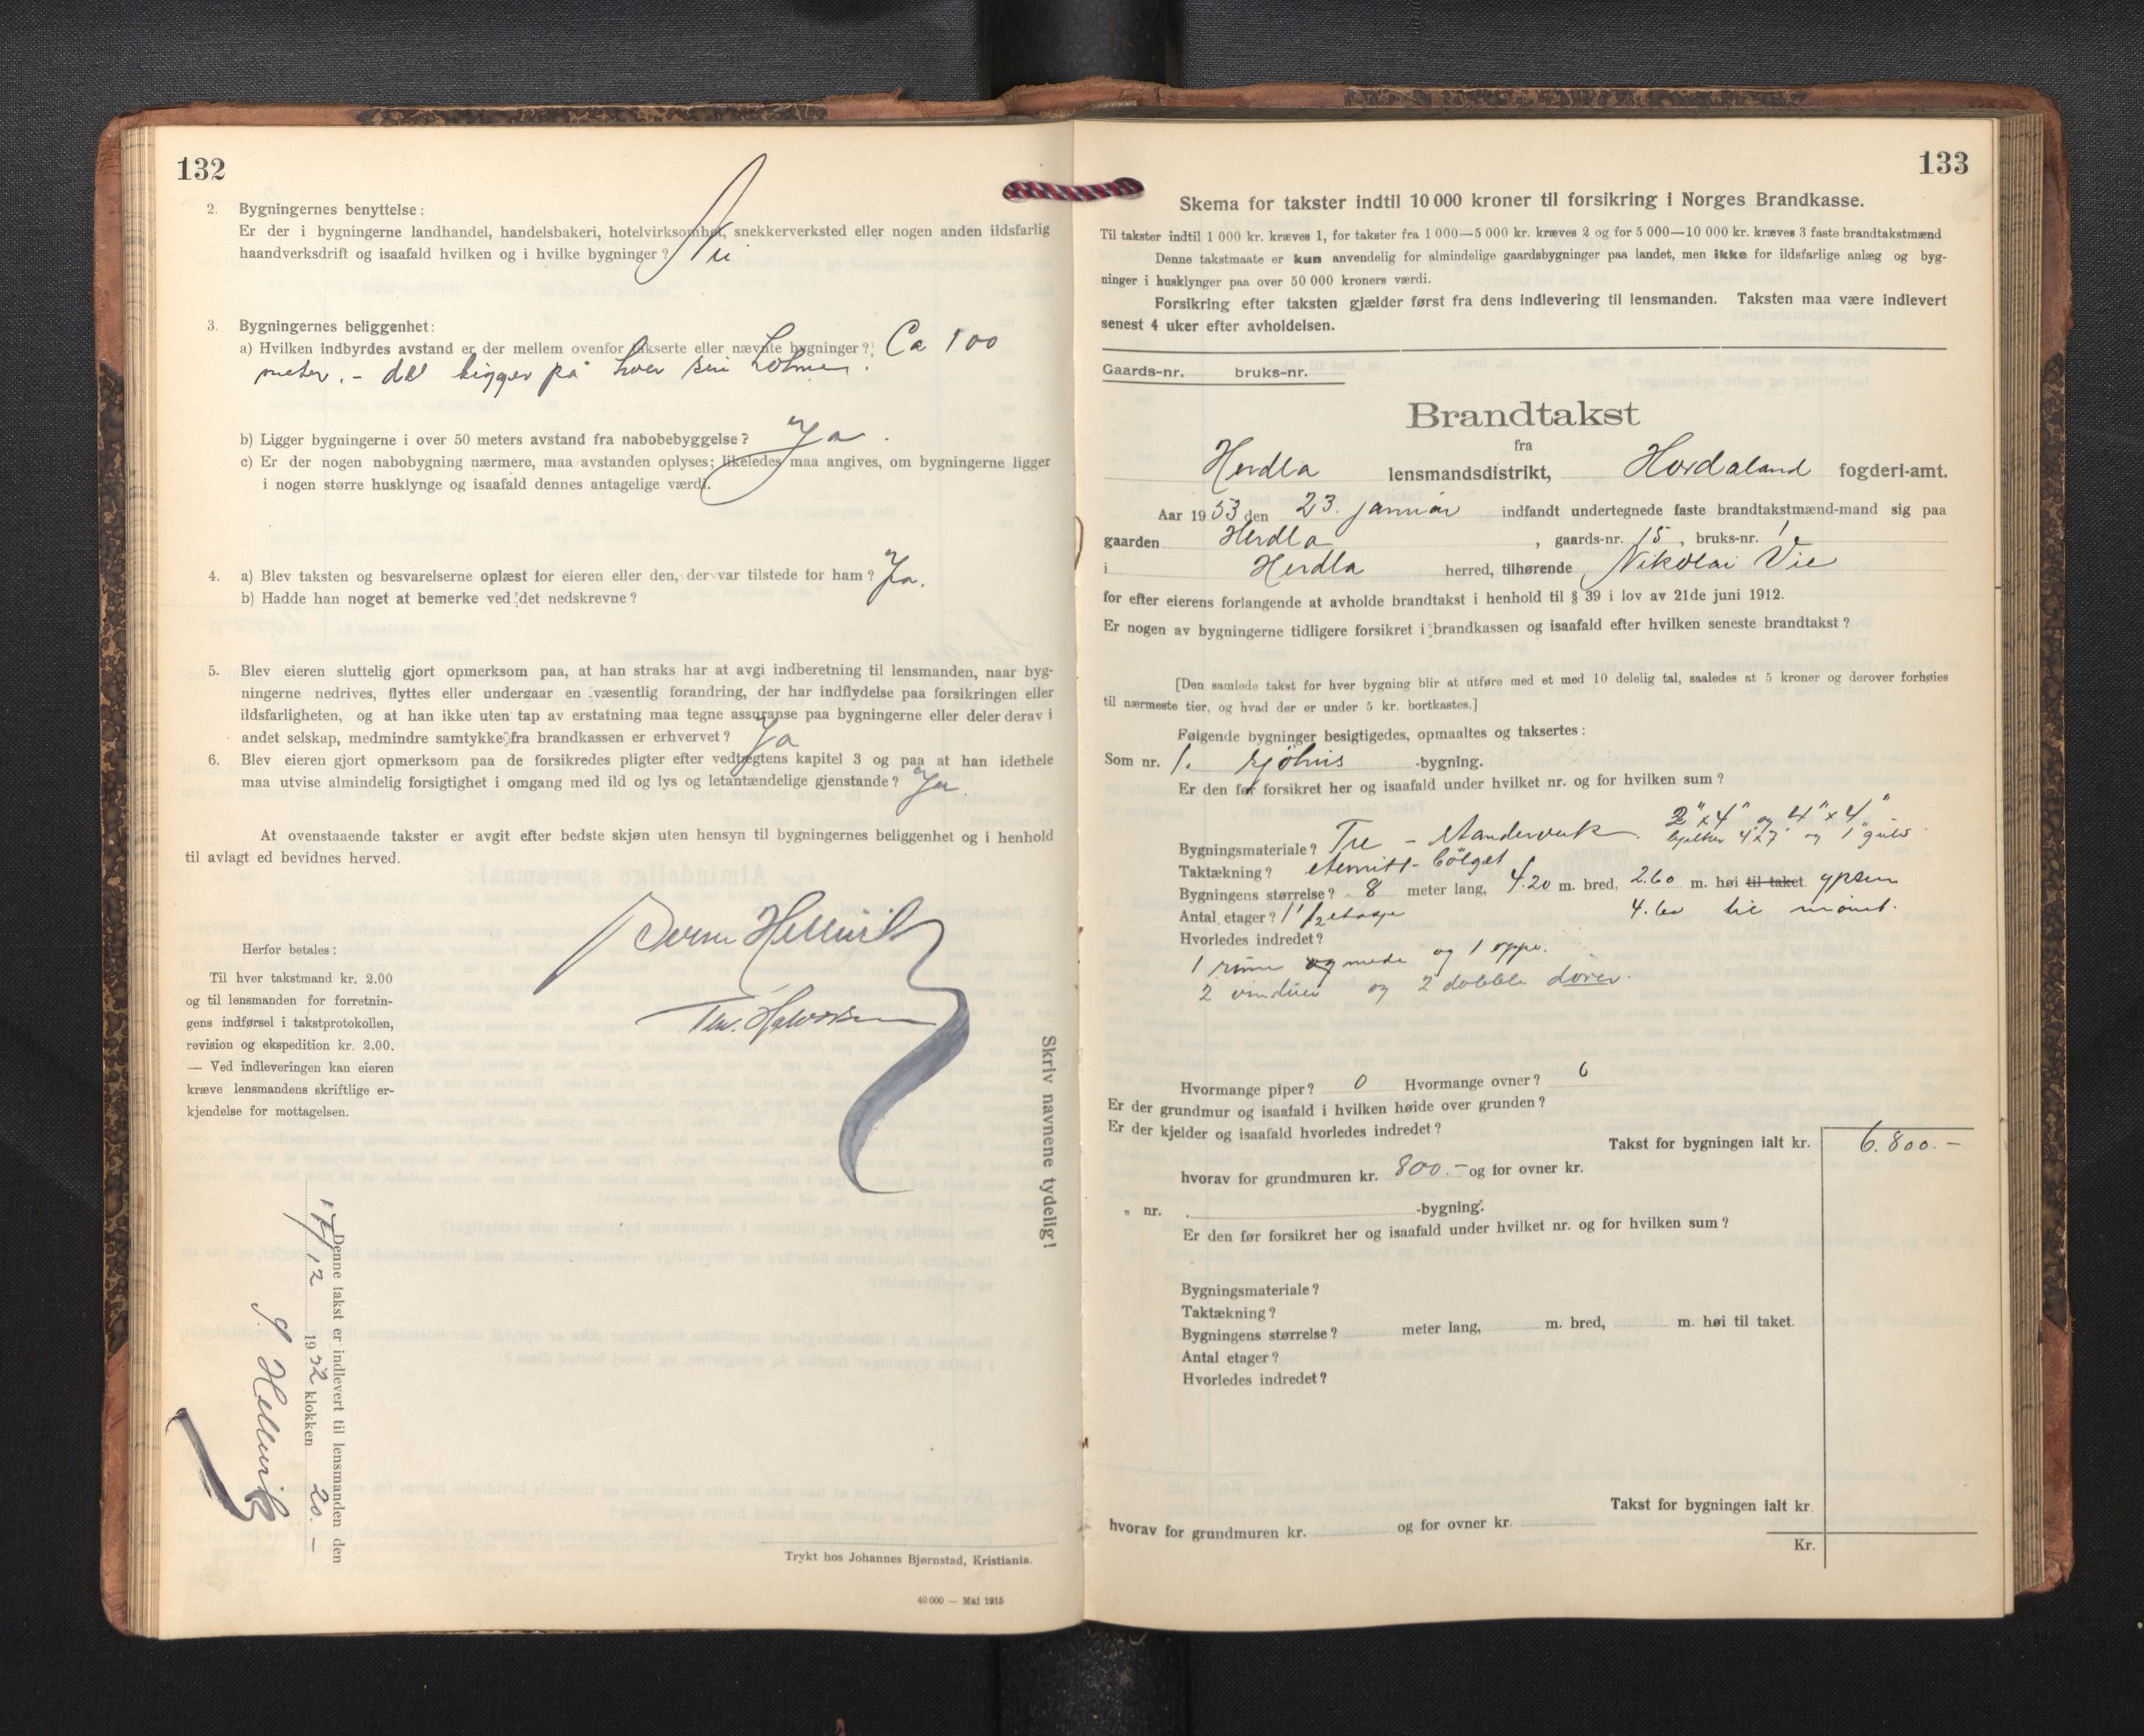 132
2. Bygningernes benyttelse:
Er der i bygningerne landhandel, handelsbakeri, hotelvirksomhet, snekkerverksted eller nogen anden ildsfarlig
haandverksdrift og isaafald hvilken og i hvilke bygninger? Nei
3. Bygningernes beliggenhet:
a) Hvilken indbyrdes avstand er der mellem ovenfor takserte eller nævnte bygninger? Ca 100
meter. - det ligger på hver sin holme.
b) Ligger bygningerne i over 50 meters avstand fra nabobebyggelse? Ja.
c) Er der nogen nabobygning nærmere, maa avstanden oplyses; likeledes maa angives, om bygningerne ligger
i nogen større husklynge og isaafald dennes antagelige værdi.
4. a) Blev taksten og besvarelserne oplæst for eieren eller den, der var tilstede for ham? Ja.
b) Hadde han noget at bemerke ved det nedskrevne?
5. Blev eieren sluttelig gjort opmerksom paa, at han straks har at avgi indberetning til lensmanden, naar byg-
ningerne nedrives, flyttes eller undergaar en væsentlig forandring, der har indflydelse paa forsikringen eller
ildsfarligheten, og at han ikke uten tap av erstatning maa tegne assuranse paa bygningerne eller deler derav i
andet selskap, medmindre samtykke fra brandkassen er erhvervet? Ja
6. Blev eieren gjort opmerksom paa de forsikredes pligter efter vedtægtens kapitel 3 og paa at han idethele
maa utvise almindelig forsigtighet i omgang med ild og lys og letantændelige gjenstande? Ja
At ovenstaaende takster er avgit efter bedste skjøn uten hensyn til bygningernes beliggenhet og i henhold
til avlagt ed bevidnes herved.
Herfor betales:
Til hver takstmand kr. 2.00
og til lensmanden for forretnin-
gens indførsel i takstprotokollen,
revision og ekspedition kr. 2.00.
— Ved indleveringen kan eieren
kræve lensmandens skriftlige er-
kjendelse for mottagelsen.
Hellevik
Halvorsen
Skriv navnene tydelig!
Denne takst er indlevert til lensmanden den
17/12 1952 klokken 20.-
Hellevik
Trykt hos Johannes Bjørnstad, Kristiania.
40 000 — Mai 1915
133
Skema for takster indtil 10 000 kroner til forsikring i Norges Brandkasse.
Til takster indtil 1 000 kr. kræves 1, for takster fra 1 000—5 000 kr. kræves 2 og for 5 000—10 000 kr. kræves 3 faste brandtakstmænd
Denne takstmaate er kun anvendelig for almindelige gaardsbygninger paa landet, men ikke for ildsfarlige anlæg og byg-
ninger i husklynger paa over 50 000 kroners værdi.
Forsikring efter taksten gjælder først fra dens indlevering til lensmanden. Taksten maa være indlevert
senest 4 uker efter avholdelsen.
Gaards-nr. bruks-nr.
Brandtakst
fra
Herdla lensmandsdistrikt, Hordaland fogderi-amt.
Aar 1953 den 23. januar indfandt undertegnede faste brandtakstmænd-mand sig paa
gaarden Herdla, gaards-nr. 15, bruks-nr. 1
i Herdla herred, tilhørende Nikolai Vie
for efter eierens forlangende at avholde brandtakst i henhold til § 39 i lov av 21de juni 1912.
Er nogen av bygningerne tidligere forsikret i brandkassen og isaafald efter hvilken seneste brandtakst?
[Den samlede takst for hver bygning blir at utføre med et med 10 delelig tal, saaledes at 5 kroner og derover forhøies
til nærmeste tier, og hvad der er under 5 kr. bortkastes.]
Følgende bygninger besigtigedes, opmaaltes og taksertes:
Som nr. 1. sjøhus -bygning.
Er den før forsikret her og isaafald under hvilket nr. og for hvilken sum?
2"x4" og 4"x4"
Bygningsmateriale? Tre - standerverk. bjelker 4x7" og 1" gulv.
Taktækning? eternitt - bölget
Bygningens størrelse? 8 meter lang, 4.20 m. bred, 2.60 m. høi til taket
Antal etager? 1 1/2 etasje 4.60 til mönet.
Hvorledes indredet?
1 rum nede og 1 oppe.
2 vinduer og 2 dobble dører.
Hvormange piper? 0 Hvormange ovner? 0
Er der grundmur og isaafald i hvilken høide over grunden?
Er der kjelder og isaafald hvorledes indredet?
Takst for bygningen ialt kr. 6.800.-
hvorav for grundmuren kr. 800.- og for ovner kr.
„ nr. -bygning.
Er den før forsikret her og isaafald under hvilket nr. og for hvilken sum?
Bygningsmateriale?
Taktækning?
Bygningens størrelse? meter lang, m. bred, m. høi til taket.
Antal etager?
Hvorledes indredet?
Takst for bygningen ialt kr
hvorav for grundmuren kr. og for ovner kr.
Kr.